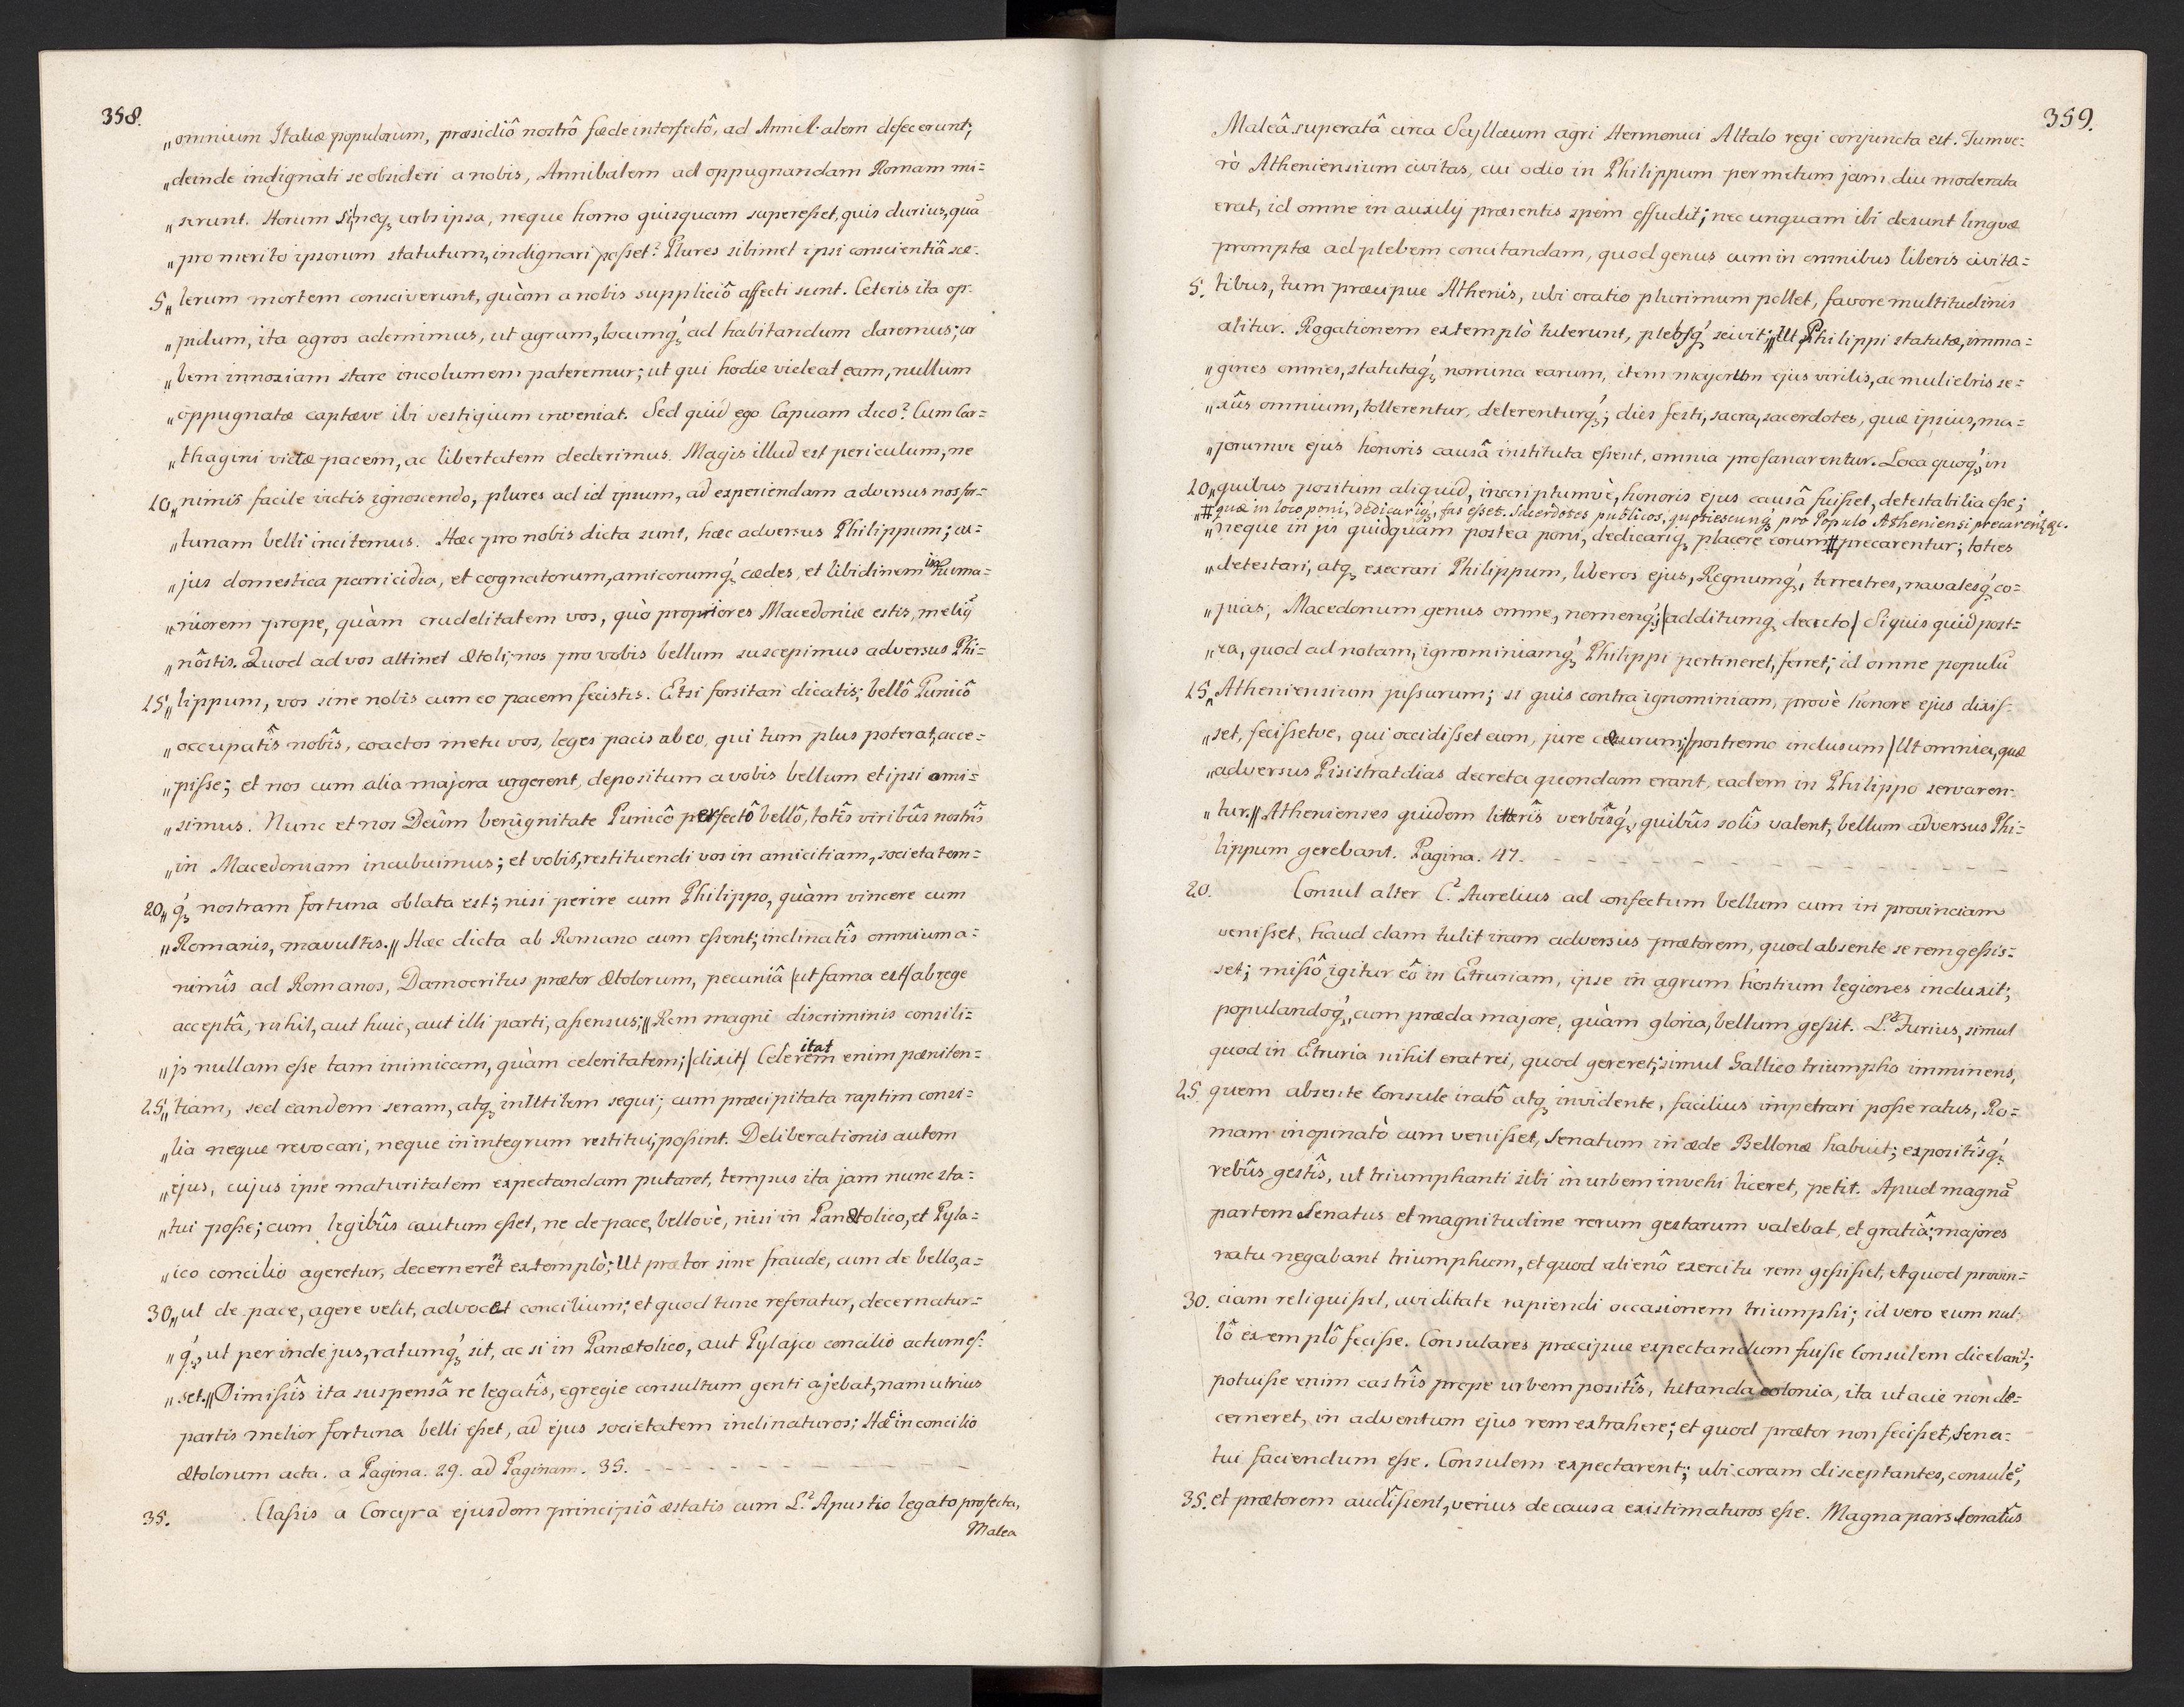 358.
„omnium Italiæ populorum, præsidiô nostrô fæde interfectô, ad Annibalem defecerunt;
„deinde indignati se obsideri a nobis, Annibalem ad oppugnandam Romam mi=
„serunt. Horum si neq₃ urbs ipsa, neque homo quisquam superesset, quis durius, quã
„pro merito ipsorum statutum, indignari posset? Plures sibimet ipsi conscientiâ sce-
5„ lerum mortem consciverunt, quàm a nobis suppliciô affecti sunt. Ceteris ita op-
„pidum, ita agros ademimus, ut agrum, locumq́₃ ad habitandum daremus; ur
„bem innoxiam stare incolumem pateremur; ut qui hodie videat eam, nullum
„oppugnatæ captæve ibi vestigium inveniat. Sed quid ego Capuam dico? Cum Car=
„thagini victæ pacem, ac libertatem dederimus. Magis illud est periculum, ne
10„ nimis facile victis ignoscendo, plures ad id ipsum, ad experiendam adversus nos for=
„tunam belli incitemus. Hæc pro nobis dicta sunt, hæc adversus Philippum; cu=
„jus domestica parricidia, et cognatorum, amicorumq́₃ cædes, et libidinem inhuma=
„niorem prope, quàm crudelitatem vos, quò propriores Macedoniæ estis, meliũ
„nôstis. Quod ad vos attinet Ætoli; nos pro vobis bellum suscepimus adversus Phi=
15„ lippum, vos sine nobis cum eo pacem fecistis. Etsi forsitan dicatis; bellô Punicô
„occupatîs nobîs, coactos metu vos, leges pacis ab eo, qui tum plus poterat, acce=
„pisse; et nos cum alia majora urgerent, depositum a vobis bellum et ipsi omi=
„simus. Nunc et nos Deûm benignitate Punicô perfectô bellô, totîs viribûs nostrîs
„in Macedoniam incubuimus; et vobis, restituendi vos in amicitiam, societatem=
20„ q́₃ nostram fortuna oblata est; nisi perire cum Philippo, quàm vincere cum
„Romanis, mavultis.„ Hæc dicta ab Romano cum essent; inclinatîs omnium a=
nimîs ad Romanos, Damocritus prætor Ætolorum, pecuniâ (ut fama est) ab rege
acceptâ, nihil, aut huic, aut illi parti, assensus; „Rem magni discriminis consili=
„js nullam esse tam inimicam, quàm celeritatem; (dixit) Celeremitat enim pæniten=
25„ tiam, sed eandem seram, atq₃ inUtilem sequi; cum præcipitata raptim consi=
„lia neque revocari, neque in integrum restitui, possint. Deliberationis autem
„ejus, cujus ipse maturitatem expectandam putaret, tempus ita jam nunc sta=
„tui posse; cum legibûs cautum esset, ne de pace, bellovè, nisi in Panætolico, et Pyla=
„ico concilio ageretur, decernerẽt extemplò; Ut prætor sine fraude, cum de bello, a=
30„ut de pace, agere velit, advocet concilium; et quod tunc referatur, decernatur=
„q́₃, ut perinde jus, ratumq́₃ sit, ac si in Panætolico, aut Pylajco concilio actum es=
„set.„ Dimissîs ita suspensâ re legatîs, egregie consultum genti ajebat, nam utrius
partis melior fortuna belli esset, ad ejus societatem inclinaturos; Hæc in concilio
Ætolorum acta. a Pagina. 29. ad Paginam. 35.
35. Classis a Corcyra ejusdem principiô æstatis cum L. Apustio legato profecta,
Malea
359.
Maleâ superatâ circa Scyllæum agri Hermonici Attalo regi conjuncta est. Tum ve=
rò Atheniensium civitas, cui odio in Philippum per metum jam diu moderata
erat, id omne in auxilij præsentis spem effudit; nec unquam ibi desunt linguæ
promptæ ad plebem concitandam, quod genus cum in omnibus liberis civita=
5. tibus, tum præcipue Athenis, ubi oratio plurimum pollet, favore multitudinis
alitur. Rogationem extemplò tulerunt, plebsq́₃ scivit; „Ut Philippi statutæ, imma=
„gines omnes, statutaq́₃ nomina earum, item majorum ejus virilis, ac muliebris se=
„xûs omnium, tollerentur, delerenturq́₃; dies festi, sacra, sacerdotes, quæ ipsius, ma=
„jorumve ejus honoris causâ instituta essent, omnia profanarentur. Loca quoq́₃, in
10„quibus positum aliquid, inscriptumvè, honoris ejus causâ fuisset, detestabilia esse;
„# quæ in loco poni, dedicariq́₃, fas esset. Sacerdotes publicos, quotiescunq́₃ pro Populo Atheniensi precarent₃ &c.
„neque in ijs quidquam postea poni, dedicariq₃ placere eorum # precarentur; toties
„detestari, atq₃ execrari Philippum, liberos ejus, Regnumq́₃, terrestres, navalesq́₃ co=
„pias, Macedonum genus omne, nomenq́₃; (additumq₃ decreto) Si quis quid post=
„ea, quod ad notam, ignominiamq́₃ Philippi pertineret, ferret; id omne populũ
15„ Atheniensium jussurum; si quis contra ignominiam, provè honore ejus dixis-
„set, fecissetve, qui occidisset eum, jure cæsurum; (postremo inclusum) Ut omnia, quæ
„adversus Pisistratdias decreta quondam erant, eadem in Philippo servaren-
„tur.„ Athenienses quidem litterîs verbîsq́₃, quibûs solîs valent, bellum adversus Phi=
lippum gerebant. Pagina. 47.
20. Consul alter C. Aurelius ad confectum bellum cum in provinciam
venisset, haud clam tulit iram adversus prætorem, quod absente se rem gessis=
set; missô igitur eô in Etruriam, ipse in agrum hostium legiones induxit;
populandoq́₃, cum præda majore, quàm gloria, bellum gessit. L. Furius, simul
quod in Etruria nihil erat rei, quod gereret; simul Gallico triumpho imminens,
25. quem absente Consule iratô atq₃ invidente, facilius impetrari posse ratus, Ro=
mam inopinatò cum venisset, Senatum in æde Bellonæ habuit; expositîsq́₃
rebûs gestîs, ut triumphanti sibi in urbem invehi liceret, petit. Apud magnã
partem Senatus et magnitudine rerum gestarum valebat, et gratiâ; majores
natu negabant triumphum, et quod alienô exercitu rem gessisset, et quod provin=
30. ciam reliquisset, aviditate rapiendi occasionem triumphi; id vero eum nul-
lô exemplô fecisse. Consulares præcipue expectandum fuisse Consulem dicebant;
potuisse enim castrîs prope urbem positîs, tutanda colonia, ita ut acie non de=
cerneret, in adventum ejus rem extrahere; et quod prætor non fecisset, Sena=
tui faciendum esse. Consulem expectarent; ubi coram disceptantes, consulẽ,
35. et prætorem audissent, verius de causa existimaturos esse. Magna pars Senatûs